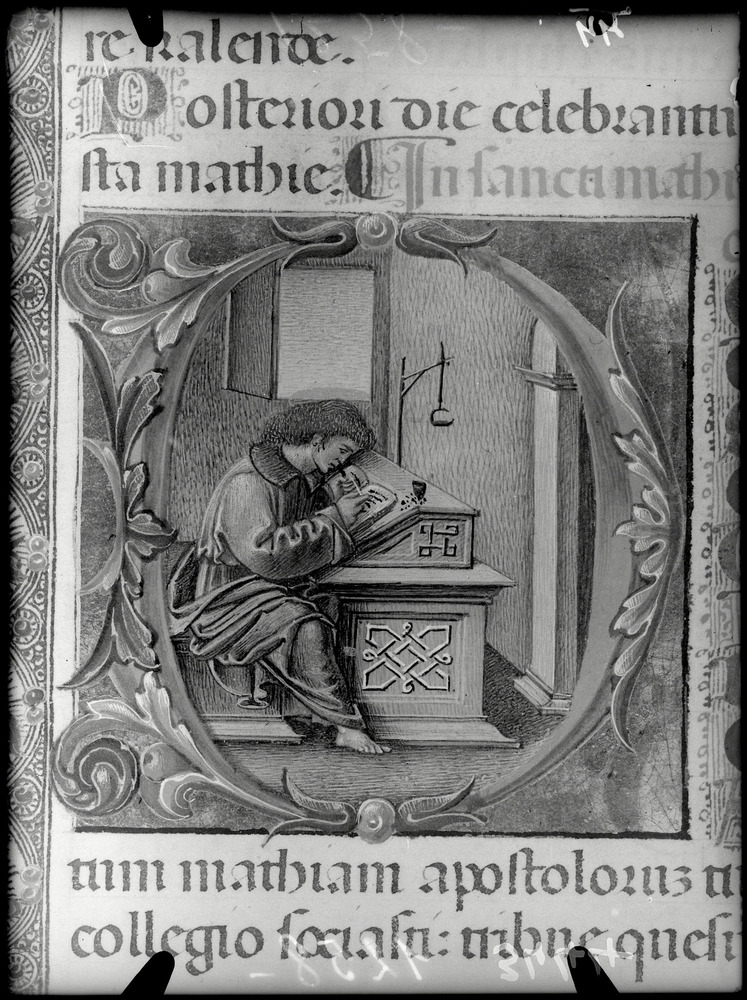 re kalende.
Posteriori die celebrantu
sta mathie. In sancti mathi
tum mathiam apostoloruʒ tu
collegio sociasti: tribue quesu